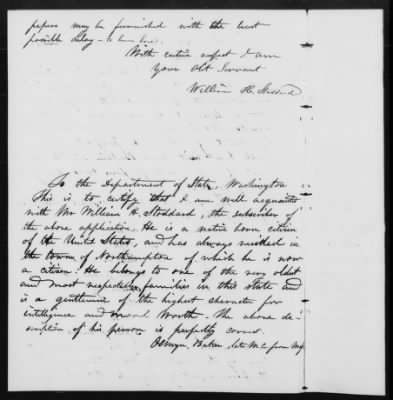 papers may be furnished with the least
possible delay - to him here.
With entire respect I am
your obt Servant
William H. Stoddard
To the Department of State, Washington
This is to certify that I am well acquainted
with Mr William H. Stoddard, the subscriber of
the above application. He is a native born citizen
of the United States, and has always resided in
the town of Northampton of which he is now
a citizen. He belongs to one of the very oldest
and most respectable families in this State and
is a gentleman of the highest character for
intelligence and moral worth. The above de-
scription of his person is perfectly correct.
Osmyn Baker late M.C. from